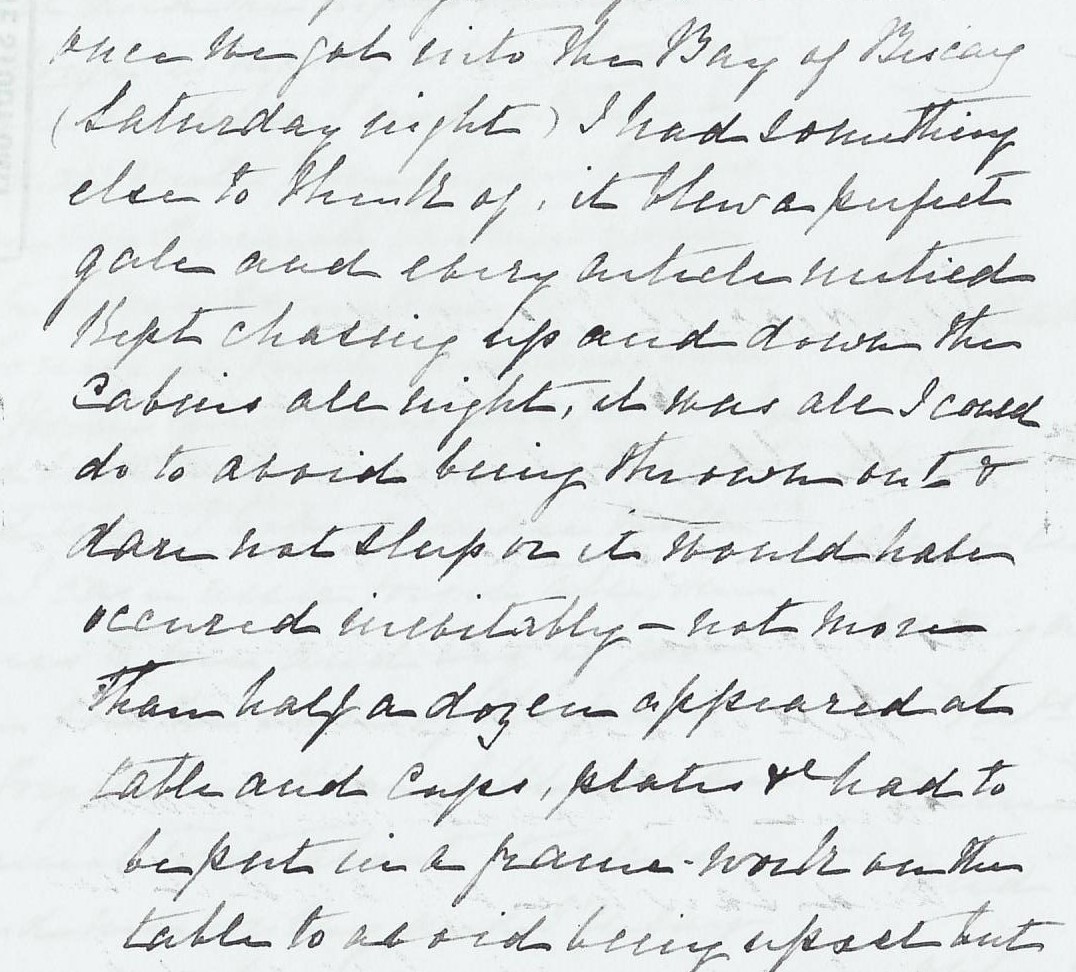 once we got into the Bay of Biscay
(Saturday night) I had something
else to think of, it blew a perfect
gale and every article untied
kept chasing up and down the
Cabins all night, it was all I could
do to avoid being thrown out &
dare not sleep or it would have
occured inevitably - not more
than half a dozen appeared at
table and cups, plates &c had to
be put in a frame-work on the
table to avoid being upset but